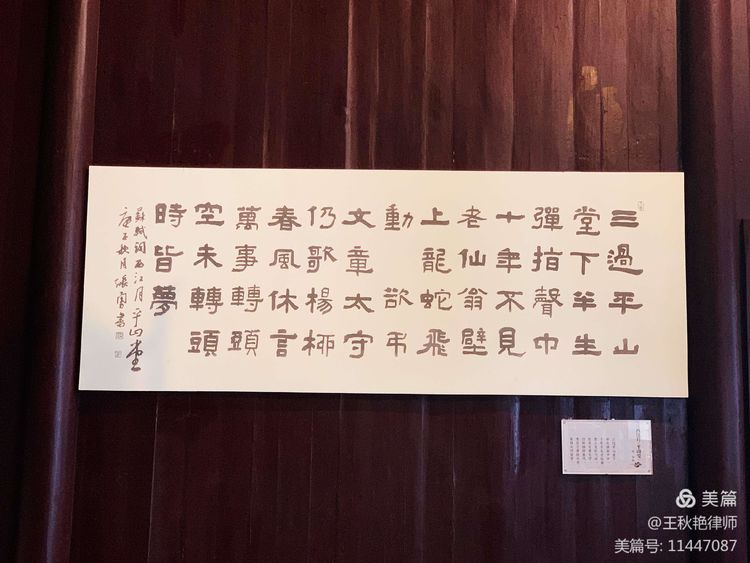 三過平山
堂下半生
彈指聲中
十年不見
老仙翁壁
上龍蛇飛
動 欲弔
文章太守
仍歌楊柳
春風休言
萬事轉頭
空未轉頭
時皆夢
蘇軾詞西江月平山堂
庚子秋月張寶書
美篇
@王秋艳律师
美篇号: 11447087